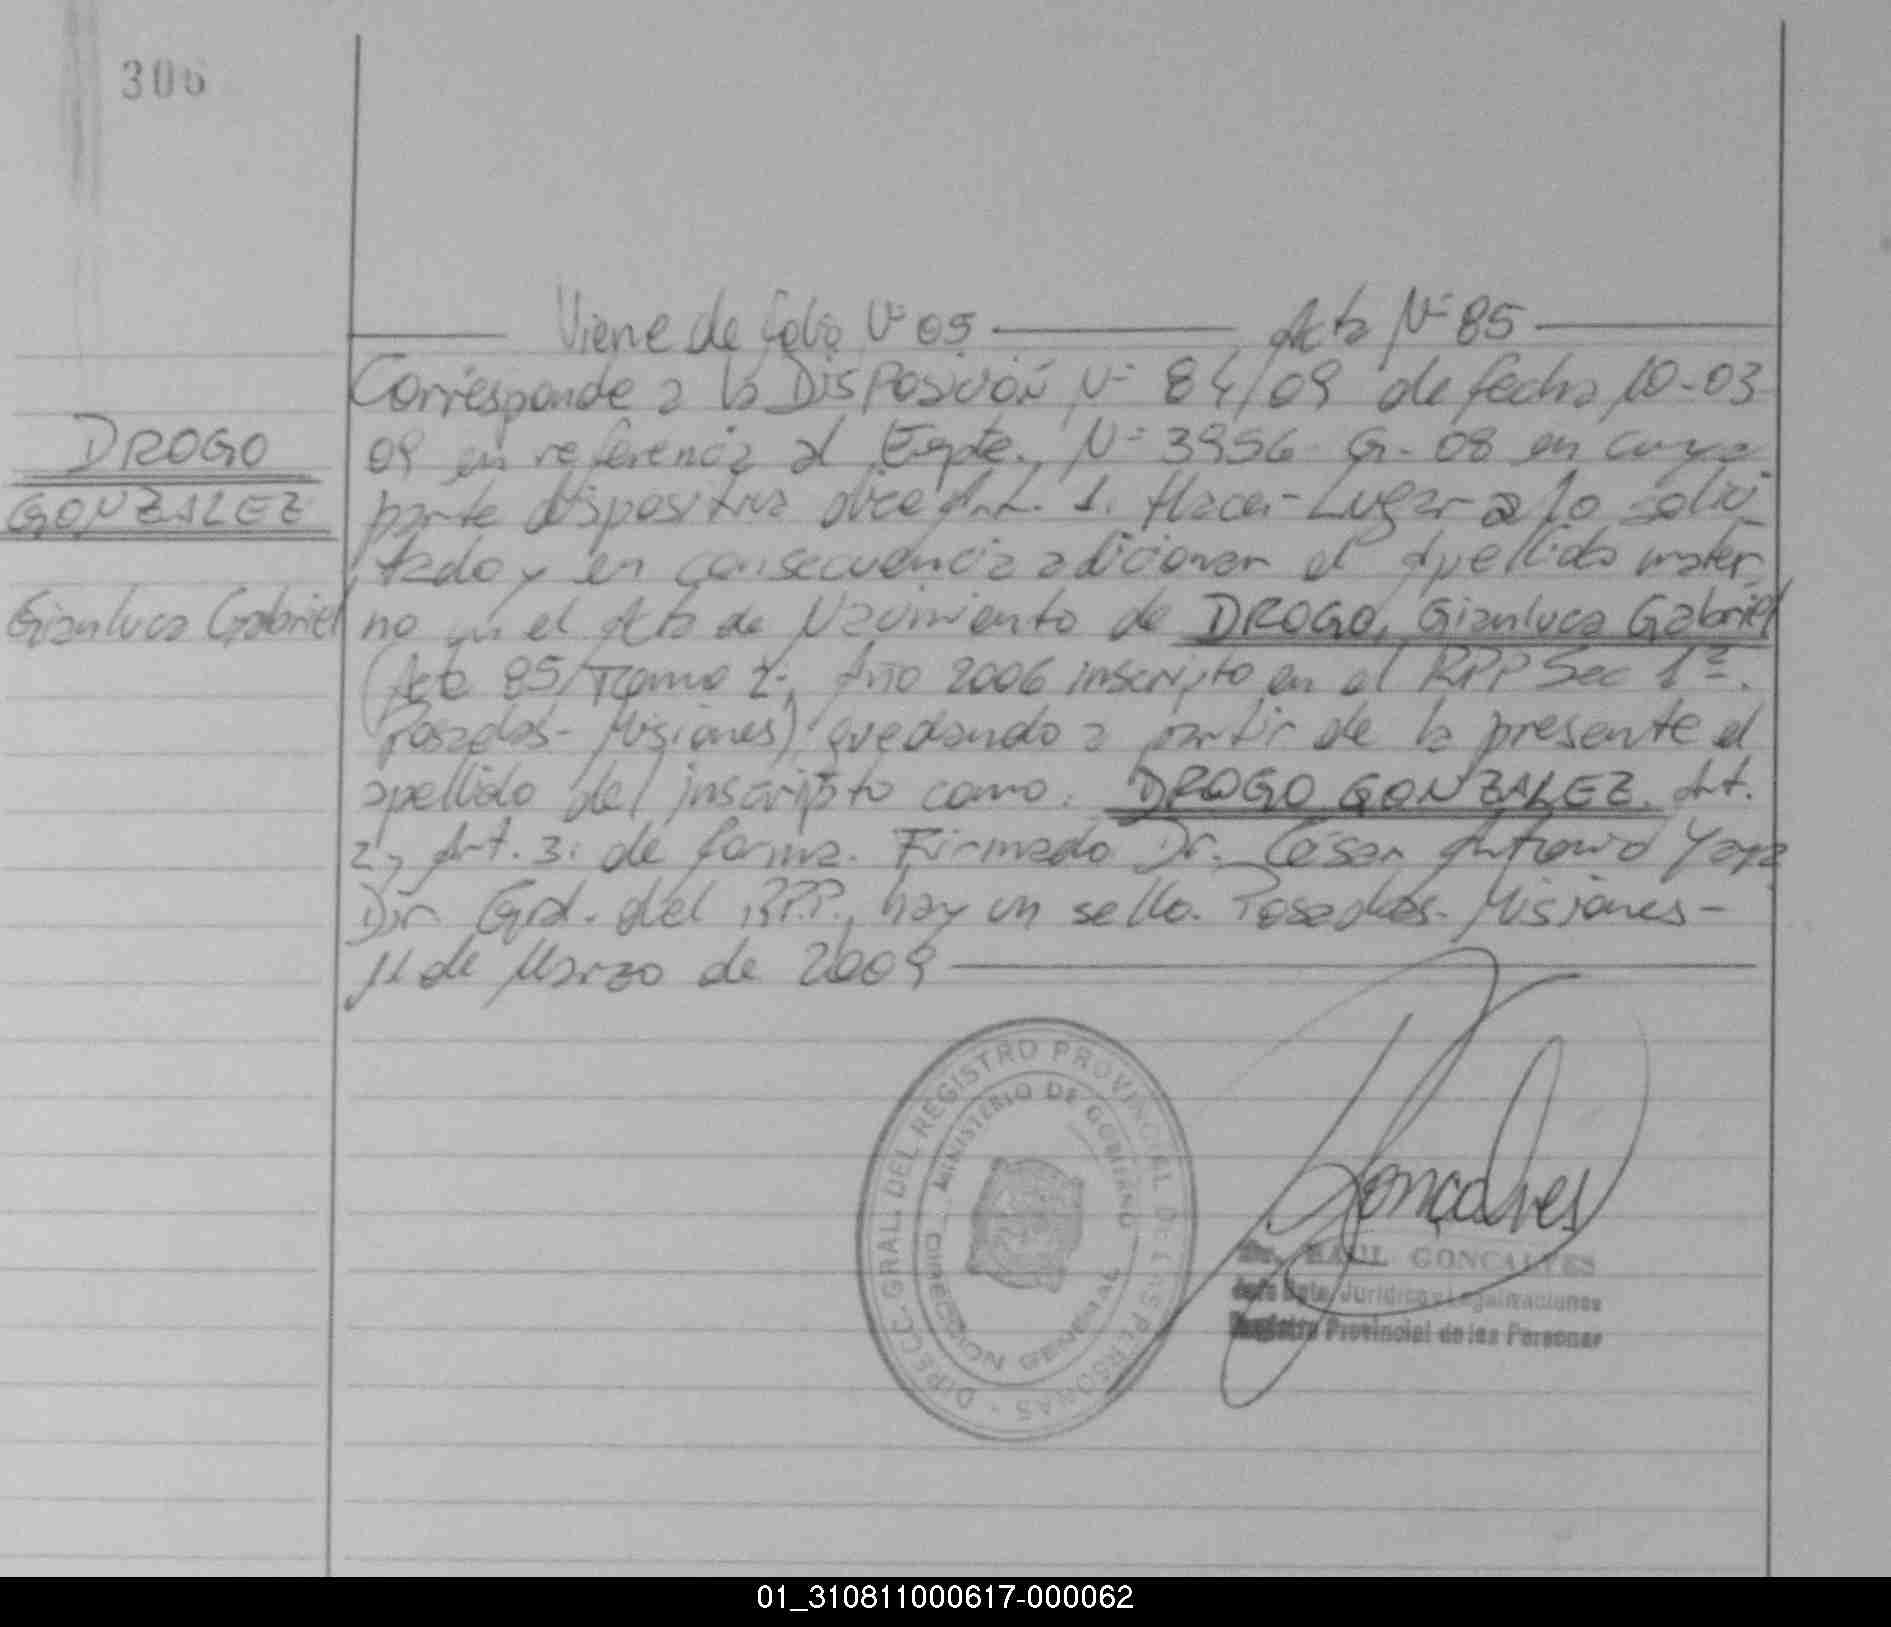 306
Viene de folio Nº 05 Acta Nº 85
Corresponde a la Disposición Nº 84/09 de fecha 10-03-
09 en referencia al Expte. Nº 3956-G-08 en cuya
parte dispositiva dice Art. 1. Hacer-Lugar a lo solici-
tado y en consecuencia adicionar el Apellido mater-
no en el Acta de Nacimiento de DROGO, Gianluca Gabriel
(Acta 85/Tomo 2, Año 2006 inscripto en el RPP Sec 1ª.
Posadas-Misiones) quedando a partir de la presente el
apellido del inscripto como: DROGO GONZALEZ. Art.
2, Art. 3: de forma. Firmado Dr. César Antonio Yaya
Dir. Gral. del R.P.P., hay un sello. Posadas-Misiones-
11 de Marzo de 2009
DROGO
GONZALEZ
Gianluca Gabriel
DIRECC. GRAL. DEL REGISTRO PROVINCIAL DE LAS PERSONAS -
MINISTERIO DE GOBIERNO
DIRECCION GENERAL
Goncalves
RAUL GONCALVES
Jefe Dpto. Jurídico y Legalizaciones
Registro Provincial de las Personas
01_310811000617-000062